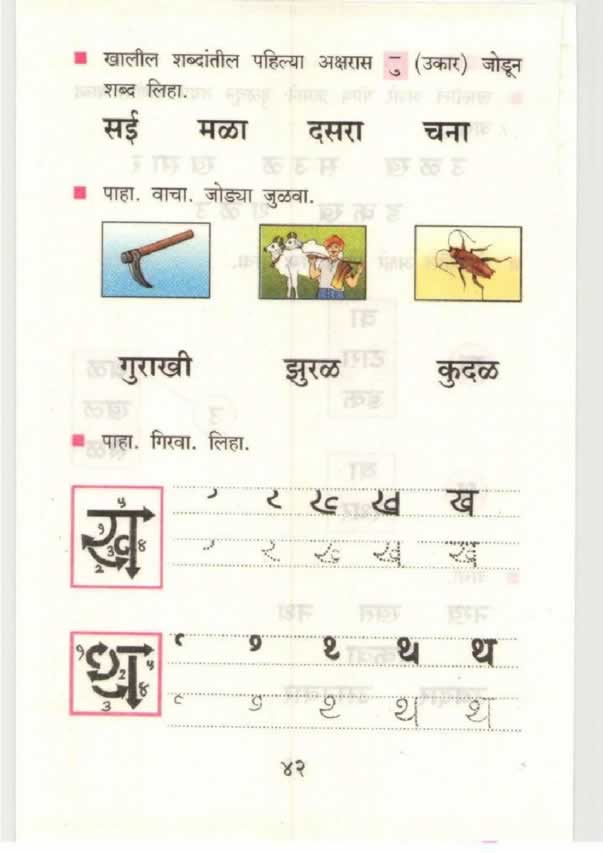 खालील शब्दांतील पहिल्या अक्षरास ु (उकार) जोडून
शब्द लिहा.
सई मळा दसरा चना
पाहा. वाचा. जोड्या जुळवा.
गुराखी झुरळ कुदळ
पाहा. गिरवा. लिहा.
ख ख ख
ख ख
थ थ थ
थ थ
४२